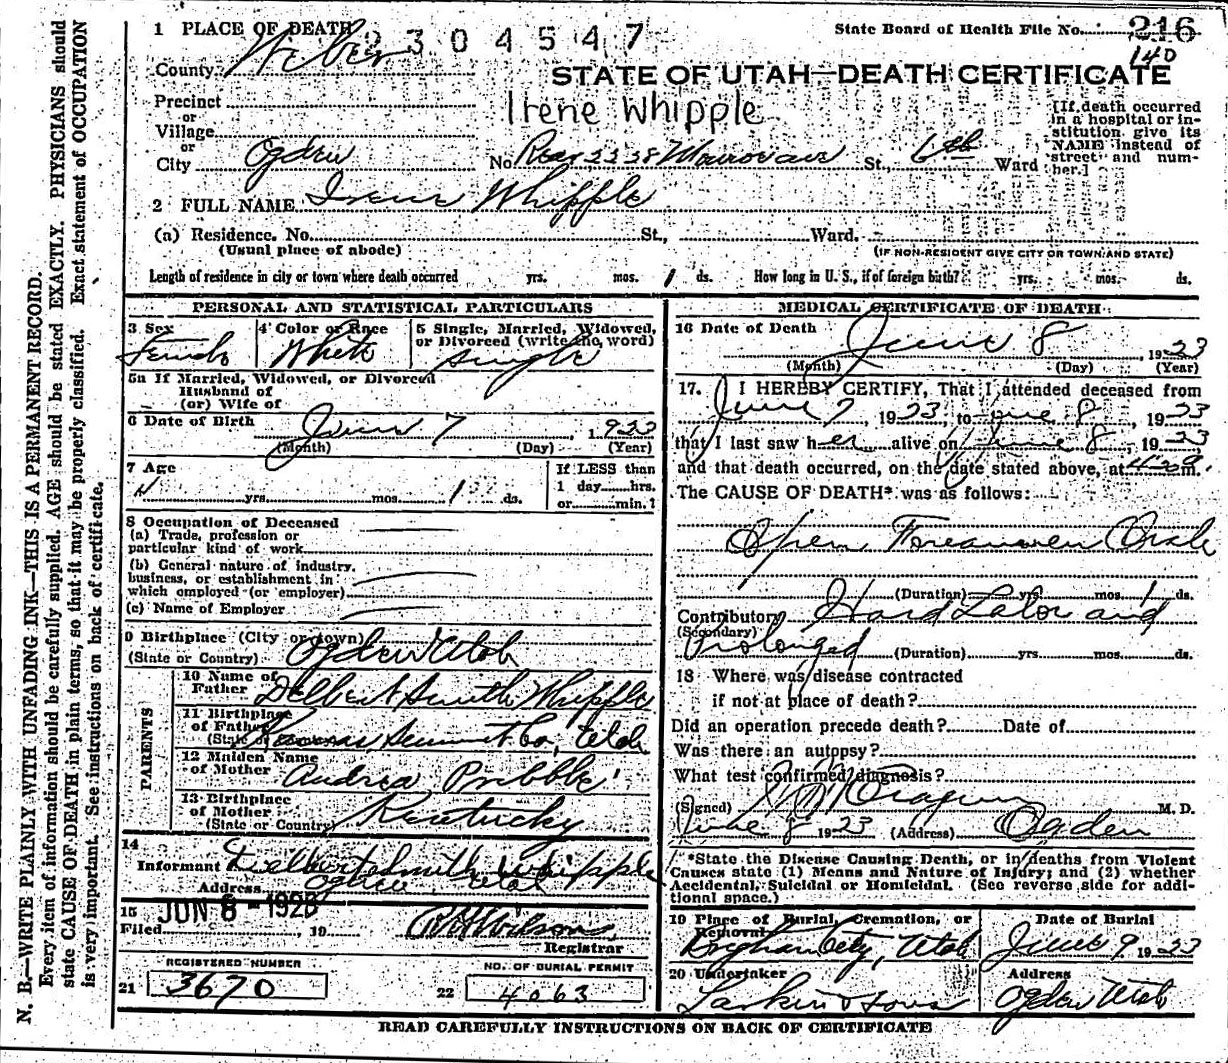 1 PLACE OF DEATH 2304547 State Board of Health File No. 216
140
County Weber
STATE OF UTAH—DEATH CERTIFICATE
Precinct
or
Village
or
City Ogden No. Rear 2338 Monroe ave St., 6th Ward
Irene Whipple
[If death occurred
in a hospital or in-
stitution give its
NAME instead of
street and num-
ber.]
2 FULL NAME Irene Whipple
(a) Residence. No. St., Ward.
(Usual place of abode) (IF NON-RESIDENT GIVE CITY OR TOWN AND STATE)
Length of residence in city or town where death occurred yrs. mos. 1 ds. How long in U. S., if of foreign birth? yrs. mos. ds.
PERSONAL AND STATISTICAL PARTICULARS
3 Sex
Female
4 Color or Race
White
5 Single, Married, Widowed,
or Divorced (write the word)
single
5a If Married, Widowed, or Divorced
Husband of
(or) Wife of
6 Date of Birth June 7, 1923
(Month) (Day) (Year)
7 Age
yrs. mos. 1 ds.
If LESS than
1 day hrs.
or min. ?
8 Occupation of Deceased
(a) Trade, profession or
particular kind of work
(b) General nature of industry,
business, or establishment in
which employed (or employer)
(c) Name of Employer
9 Birthplace (City or town)
(State or Country) Ogden Utah
PARENTS
10 Name of
Father Delbert Smith Whipple
11 Birthplace
of Father
(State or Summit Co, Utah
12 Maiden Name
of Mother Andrea Pribble
13 Birthplace
of Mother
(State or Country) Kentucky
14
Informant Delbert Smith Whipple
Address Ogden Utah
15 JUN 8 - 1923
Filed , 19 Wilson
Registrar
REGISTERED NUMBER
21 3670
NO. OF BURIAL PERMIT
22 4063
MEDICAL CERTIFICATE OF DEATH
16 Date of Death June 8, 1923
(Month) (Day) (Year)
17. I HEREBY CERTIFY, That I attended deceased from
June 7 1923, to June 8, 1923
that I last saw her alive on June 8, 1923
and that death occurred, on the date stated above, at m.
The CAUSE OF DEATH* was as follows:
Open Foreamen Ovale
(Duration) yrs. mos. 1 ds.
Contributory Hard Labor and
(Secondary)
Prolonged (Duration) yrs. mos. ds.
18 Where was disease contracted
if not at place of death?
Did an operation precede death? Date of
Was there an autopsy?
What test confirmed diagnosis?
(Signed) M. D.
June 8 1923 (Address) Ogden
*State the Disease Causing Death, or in deaths from Violent
Causes state (1) Means and Nature of Injury; and (2) whether
Accidental, Suicidal or Homicidal. (See reverse side for addi-
tional space.)
19 Place of Burial, Cremation, or
Removal
Brigham City, Utah
Date of Burial
June 9 1923
20 Undertaker
Larkin & Sons
Address
Ogden Utah
READ CAREFULLY INSTRUCTIONS ON BACK OF CERTIFICATE
N. B.—WRITE PLAINLY WITH UNFADING INK—THIS IS A PERMANENT RECORD.
Every item of information should be carefully supplied. AGE should be stated EXACTLY. PHYSICIANS should
state CAUSE OF DEATH in plain terms, so that it may be properly classified. Exact statement of OCCUPATION
is very important. See instructions on back of certificate.